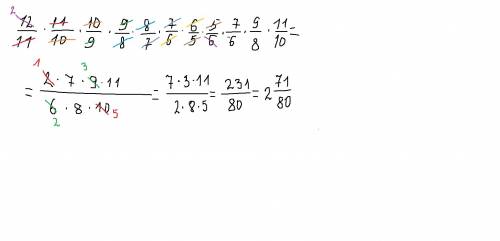 2 12/11 · 11/10 · 10/9 · 9/8 · 8/7 · 7/6 · 6/5 · 5/6 · 7/6 · 9/8 · 11/10 =
= 1 2 · 7 · 3 9 · 11 / 6 2 · 8 · 10 5 = 7 · 3 · 11 / 2 · 8 · 5 = 231/80 = 2 71/80